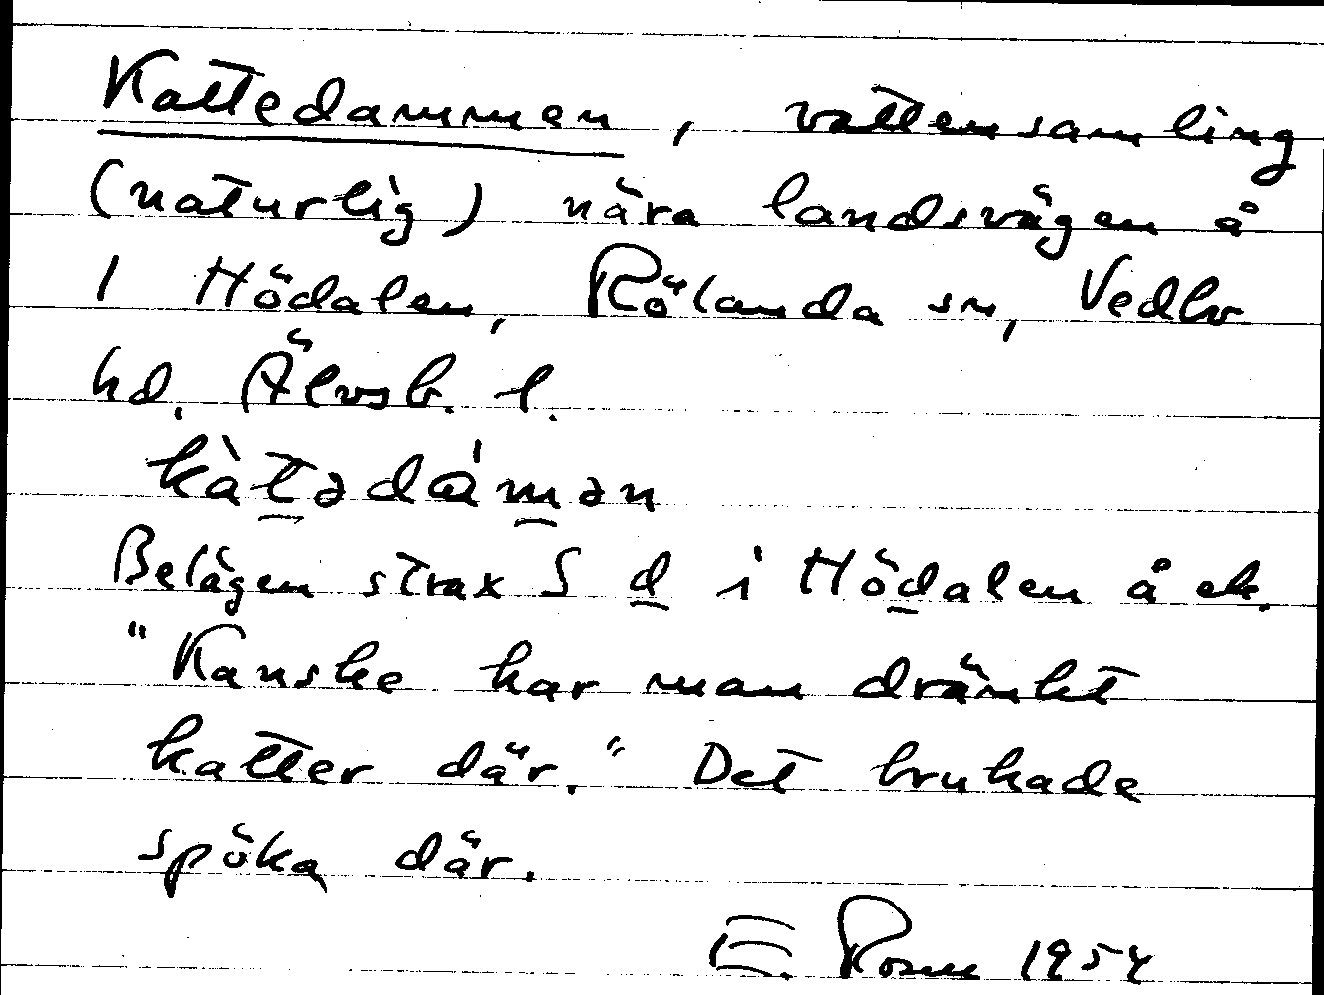 Kattedammen, vattensamling
(naturlig) nära landsvägen å
1 Hödalen, Rölanda sn, Vedbo
hd. Älvsb. l.
kàtədámən
Belägen strax S d i Hödalen å ek.
"Kanske har man dränkt
katter där." Det brukade
spöka där.
E. Rosen 1954